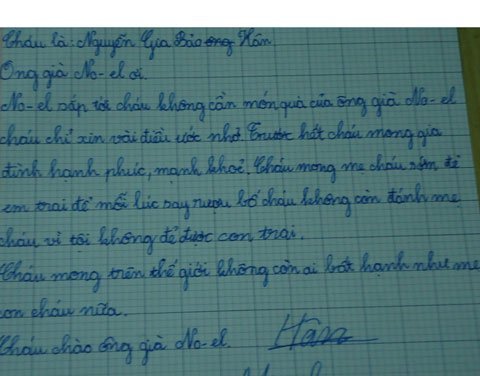 Cháu là: Nguyễn Gia Bảo Hân
Ông già No-el ơi.
No-el sắp tới cháu không cần món quà của ông già No-el
cháu chỉ xin vài điều ước nhỏ. Trước hết cháu mong gia
đình hạnh phúc, mạnh khoẻ. Cháu mong mẹ cháu sớm đẻ
em trai để mỗi lúc say rượu bố cháu không còn đánh mẹ
cháu vì tội không đẻ được con trai.
Cháu mong trên thế giới không còn ai bất hạnh như mẹ
con cháu nữa.
Cháu chào ông già No-el. Hân